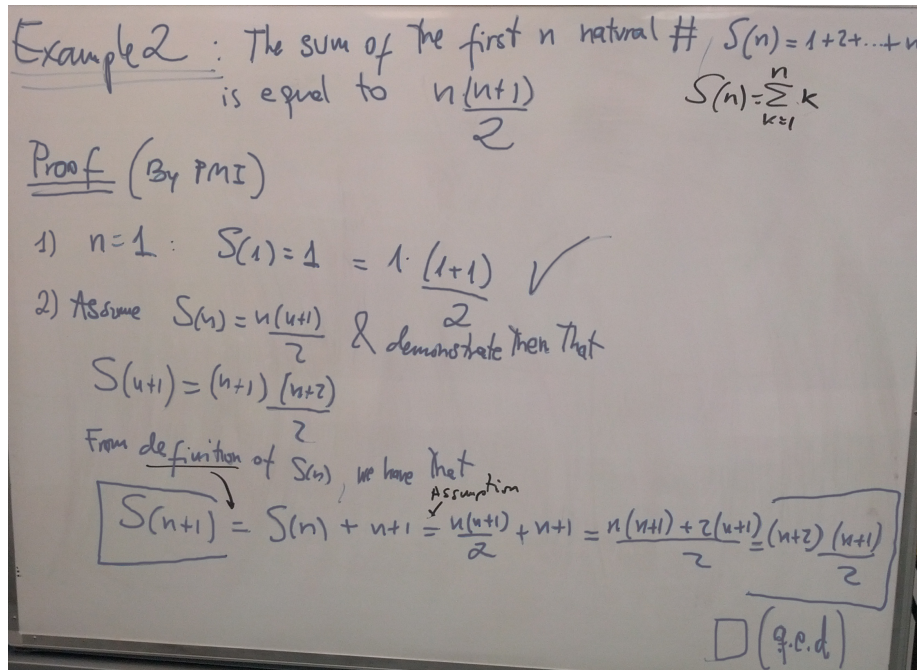 Example 2 : The sum of the first n natural #, S(n) = 1+2+...+n
is equal to n(n+1)/2
S(n) = ∑_{k=1}^{n} k
Proof (By PMI)
1) n=1 : S(1) = 1 = 1·(1+1)/2 ✓
2) Assume S(n) = n(n+1)/2 & demonstrate then that
S(n+1) = (n+1)(n+2)/2
From definition of S(n), we have that
Assumption
S(n+1) = S(n) + n+1 = n(n+1)/2 + n+1 = n(n+1)+2(n+1)/2 = (n+2)(n+1)/2
□ (q.e.d)